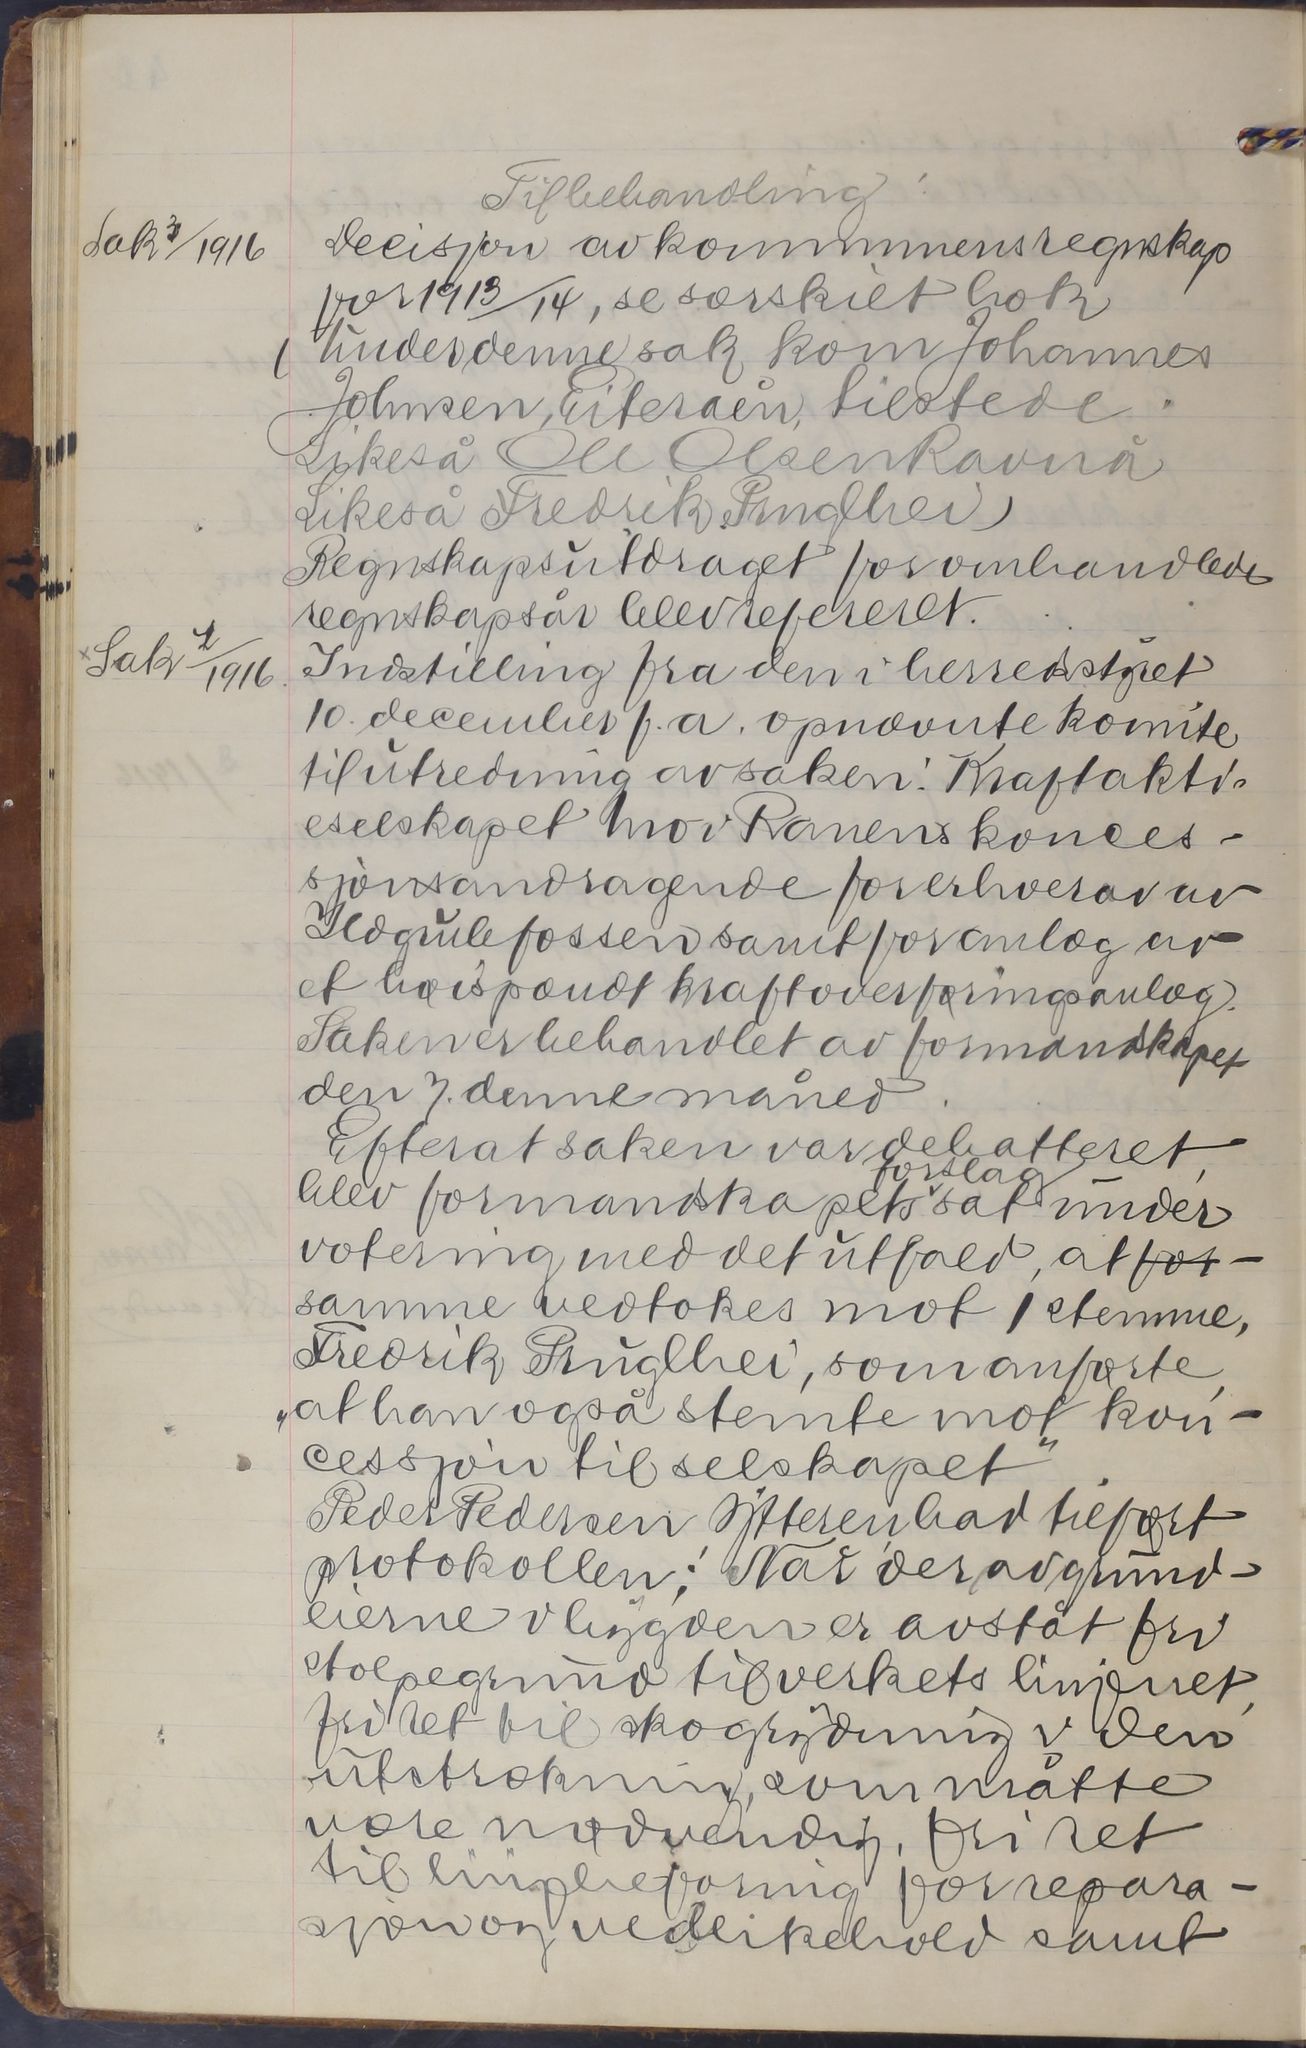 Til behandling:
Sak 3/1916 Decisjon av kommunens regnskap
for 1913/14, se særskilt bok
(Under denne sak kom Johannes
Johnsen, Eiteråen, tilstede.
Likeså Ole Olsen Ravnå
Likeså Fredrik Fuglhei)
Regnskapsutdraget for omhandlede
regnskapsår blev refereret.
Sak 4/1916. Indstilling fra den i herredstyret
10. december f. a. opnævnte komite
til utredning av saken: Kraftakti-
eselskapet Mo i Ranens konces-
sjonsandragende for erhverv av
Ildgrubefossen samt for anlæg av
et høispændt kraftoverføringsanlæg.
Saken er behandlet av formandskapet
den 7. denne måned.
Efter at saken var debatteret,
blev formandskapets forslag sat under
votering med det utfald, at for-
samme vedtokes mot 1 stemme,
Fredrik Fuglhei, som anførte,
"at han også stemte mot kon-
cessjon til selskapet".
Peder Pedersen Ytteren bad tilført
protokollen: Når der av grund-
eierne i bygden er avståt fri
stolpegrund til verkets linjenet,
fri ret til skogrydning i den
utstrækning, som måtte
være nødvendig, fri ret
til linjebefaring for repara-
sjon og vedlikehold samt